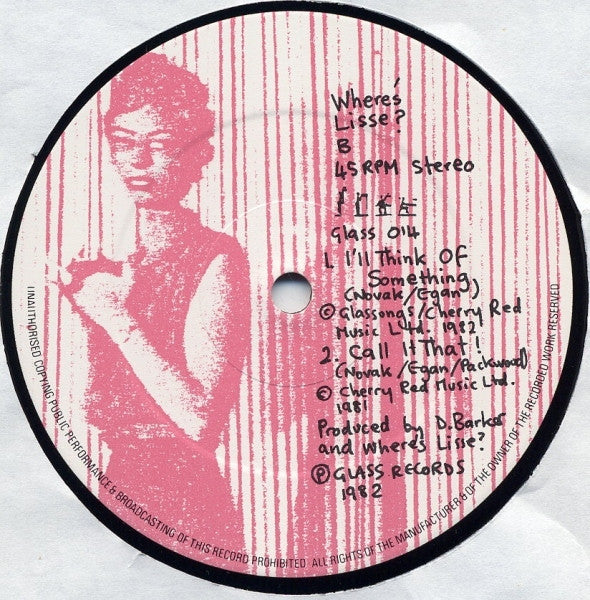 Where's
Lisse?
B
45 RPM Stereo
Glass 014
1. I'll Think Of
Something
(Novak/Egan)
© Glassongs/Cherry Red
Music Ltd. 1982
2. Call It That!
(Novak/Egan/Packwood)
© Cherry Red Music Ltd.
1981
Produced by D. Barker
and Where's Lisse?
Ⓟ GLASS RECORDS
1982
UNAUTHORISED COPYING PUBLIC PERFORMANCE & BROADCASTING OF THIS RECORD PROHIBITED ALL RIGHTS OF THE MANUFACTURER & OF THE OWNER OF THE RECORDED WORK RESERVED